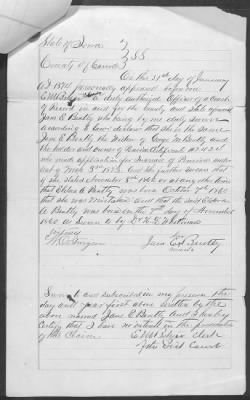 State of Iowa } SS
County of
On the 11th day of January
A.D. 1874 personally appeared before me
a duly authorized Officer of a Court
of Record in and for the County and State aforesaid
Jane E. Beatty who being by me duly sworn
according to Law declares that she is the same
Jane E. Beatty the Widow of Beatty and
the holder and owner of Pension Certificate No
who made application for Increase of Pension under
act of March 3rd 1873. And she further swears that
if she stated November 8th 1860 or at any other time
that Eldora A. Beatty was born October 7th 1860
that she was Mistaken and that the said Eldora
A. Beatty was born on the 7th day of November
1860 as sworn to by Dr.
Jane E. Beatty
Sworn to and subscribed in my presence the
day and year first above written by the
above named Jane E. Beatty and I hereby
Certify that I have no interest in the prosecution
of this Claim.
Clerk
of the Dist Court